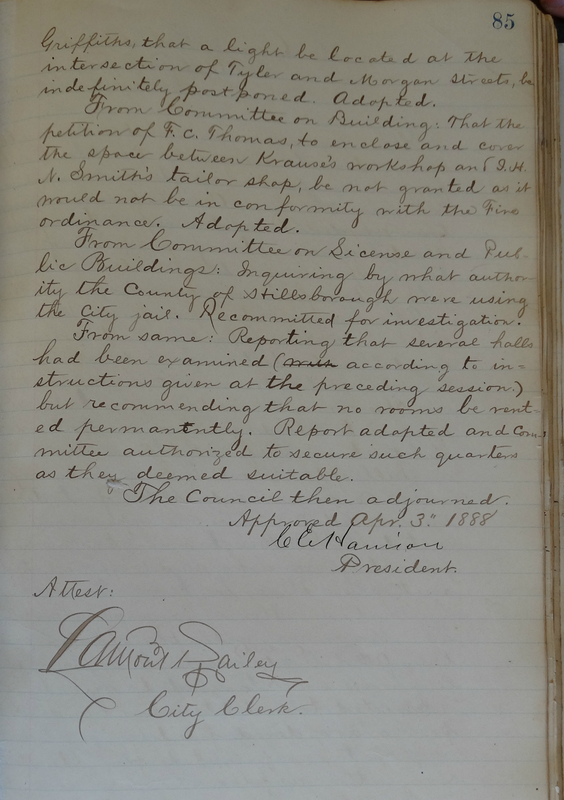 85
Griffiths, that a light be located at the
intersection of Tyler and Morgan Streets, be
indefinitely postponed. Adopted.
From Committee on Building: That the
petition of F. C. Thomas, to enclose and cover
the space between Krause's workshop and J. H.
N. Smith's tailor shop, be not granted as it
would not be in conformity with the Fire
ordinance. Adopted.
From Committee on License and Pub-
lic Buildings: Inquiring by what author-
ity the County of Hillsborough were using
the City jail. Recommitted for investigation.
From same: Reporting that several halls
had been examined ( according to in-
structions given at the preceding session.)
but recommending that no rooms be rent-
ed permanently. Report adopted and Com-
mittee authorized to secure such quarters
as they deemed suitable.
The Council then adjourned.
Approved Apr. 3." 1888
C E Harrison
President.
Attest:
Lamont Bailey
City Clerk.